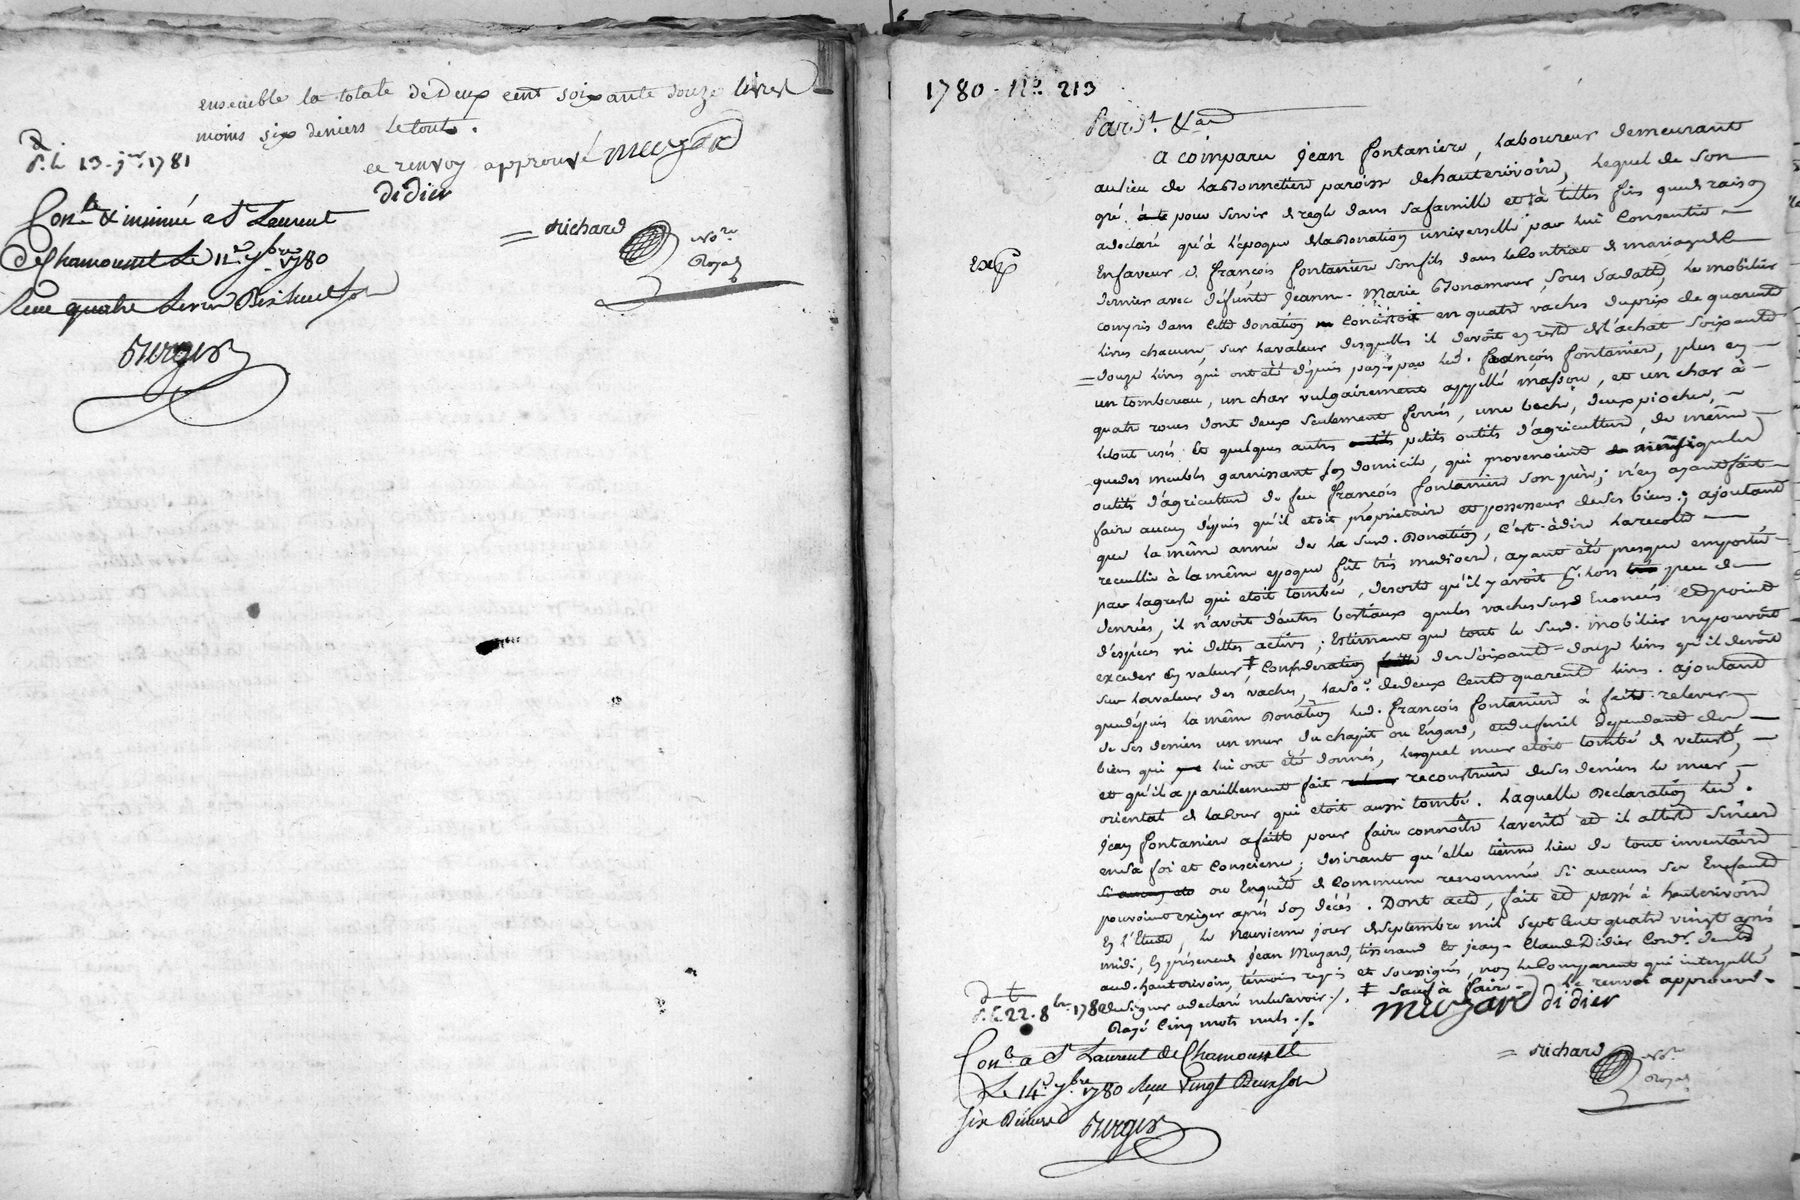 ensemble la totale de deux cent soixante douze livres
moins six deniers le tout.
ce renvoy approuvé Muzard
didier
d. le 13 jer 1781
Con.le & insinué a St Laurent
De Chamousset Le 11e 7bre 1780
Reçu quatre Livres Dixhuit sols
Richard Nore Royal
Burger
1780. No. 213
Pardt. &a
a comparu jean fontaniere, laboureur demeurant
au lieu de la Bonnetiere paroisse de hauterivoire, lequel de son
gré, à le pour servir de regle dans sa famille et à telles fins que de raison
a declaré qu'à l'époque de la Donation universelle par lui Consentie
Exp
En faveur de françois fontaniere son fils dans le Contrat de mariage de ce
dernier avec défunte Jeanne-Marie Bonamour, sous sa datte, le mobilier
compris dans cette donation consistoit en quatre vaches du prix de quarente
livres chacune, sur la valeur desquelles il devoit en reste de l'achat soixante
douze livres qui ont été depuis payés par led. françois fontanier, plus en
un tombereau, un char vulgairement appellé massou, et un char à
quatre roues dont deux seulement ferrés, une beche, deux pioches,
le tout usé et quelques autres outils petits outils d'agriculture, de même
que des meubles garnissant son domicile, qui provenoient ainsi que les
outils d'agriculture de feu françois fontaniere son père; n'en ayant fait
faire aucun depuis qu'il etoit propriétaire et possesseur de ses biens; ajoutant
que la même année de la susd. Donation, c'est-à-dire la recolte
recueillie à la même epoque fut très mediocre, ayant été presque emportée
par la grele qui etoit tombée, desorte qu'il y avoit pr. lors peu de
denrées, il n'avoit d'autres bestiaux que les vaches susd Enoncées et point
d'especes ni dettes actives; Estimant que tout le susd. mobilier ne pouvoit
exceder en valeur, ‡ Consideration faitte des soixante-douze livres qu'il devoit
sur la valeur des vaches, la so.e de deux Cents quarente livres. ajoutant
que depuis la même Donation led. françois fontaniere à fait relever
de ses deniers un mur du chapit ou Engard, et du fenil dependant des
biens qui lui ont été donnés, lequel mur etoit tombé de vetusté,
et qu'il a pareillement fait reconstruire de ses deniers le mur
oriental de la Cour qui etoit aussi tombé. laquelle Declaration led.
jean fontaniere a faitte pour faire connoître la verité et il atteste sincere
en sa foi et Conscience; desirant qu'elle tienne lieu de tout inventaire
ou Enquête de Commune renommée si aucuns ses Enfants
pouvoient exiger après son décés. Dont acte, fait et passé à hauterivoire
En l'Etude, le neuvieme jour de septembre mil sept Cent quatre vingt après
midi, En présence de jean Muzard, tisserand et jean-Claude Didier Cordr. demts
aud. hauterivoire, témoins requis et soussignés, non le Comparant qui interpellé
de signer a declaré ne le savoir./. ‡ sauf à faire. le renvoi approuvé.
Rayé cinq mots nuls./.
Muzard didier
d. le 22. 8bre 1780
Con.lé a St Laurent de Chamousset
Le 14e 7bre 1780 Reçu Vingt Deux sols
six Deniers
Richard Nore Royal
Burger